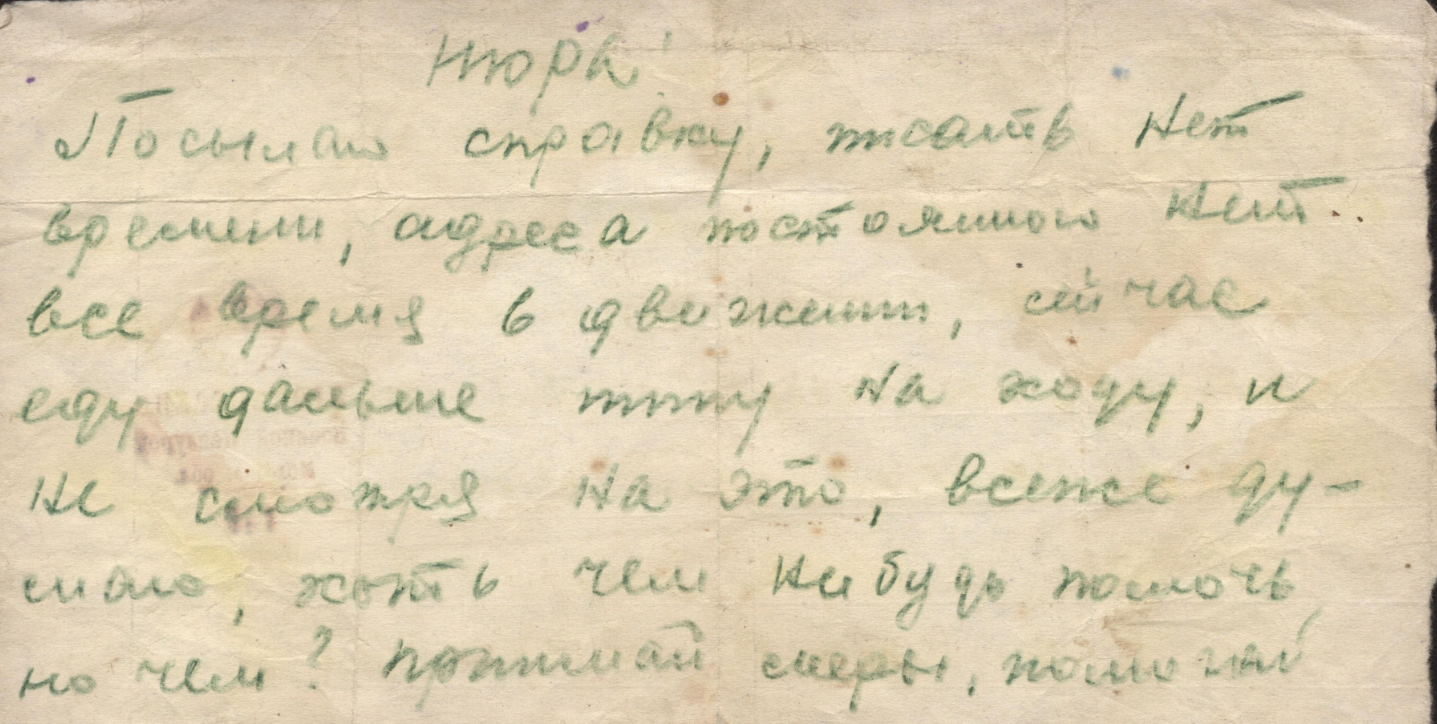 Нюра!
Посылаю справку, писать нет
времени, адреса постоянного нет..
все время в движении, сейчас
еду дальше пишу на ходу, и
не смотря на это, всеже ду-
маю, хоть чем нибудь помочь,
но чем? принимай меры, помогай